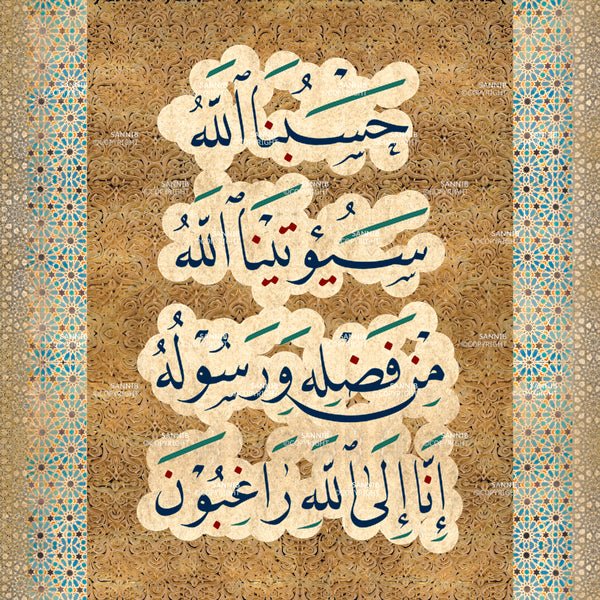 حَسْبُنَا ٱللَّهُ
سَيُؤْتِينَا ٱللَّهُ
مِنْ فَضْلِهِ وَرَسُوْلُهُ
إِنَّا إِلَى ٱللَّهِ رَاغِبُوْنَ
SANNIB
©COPYRIGHT